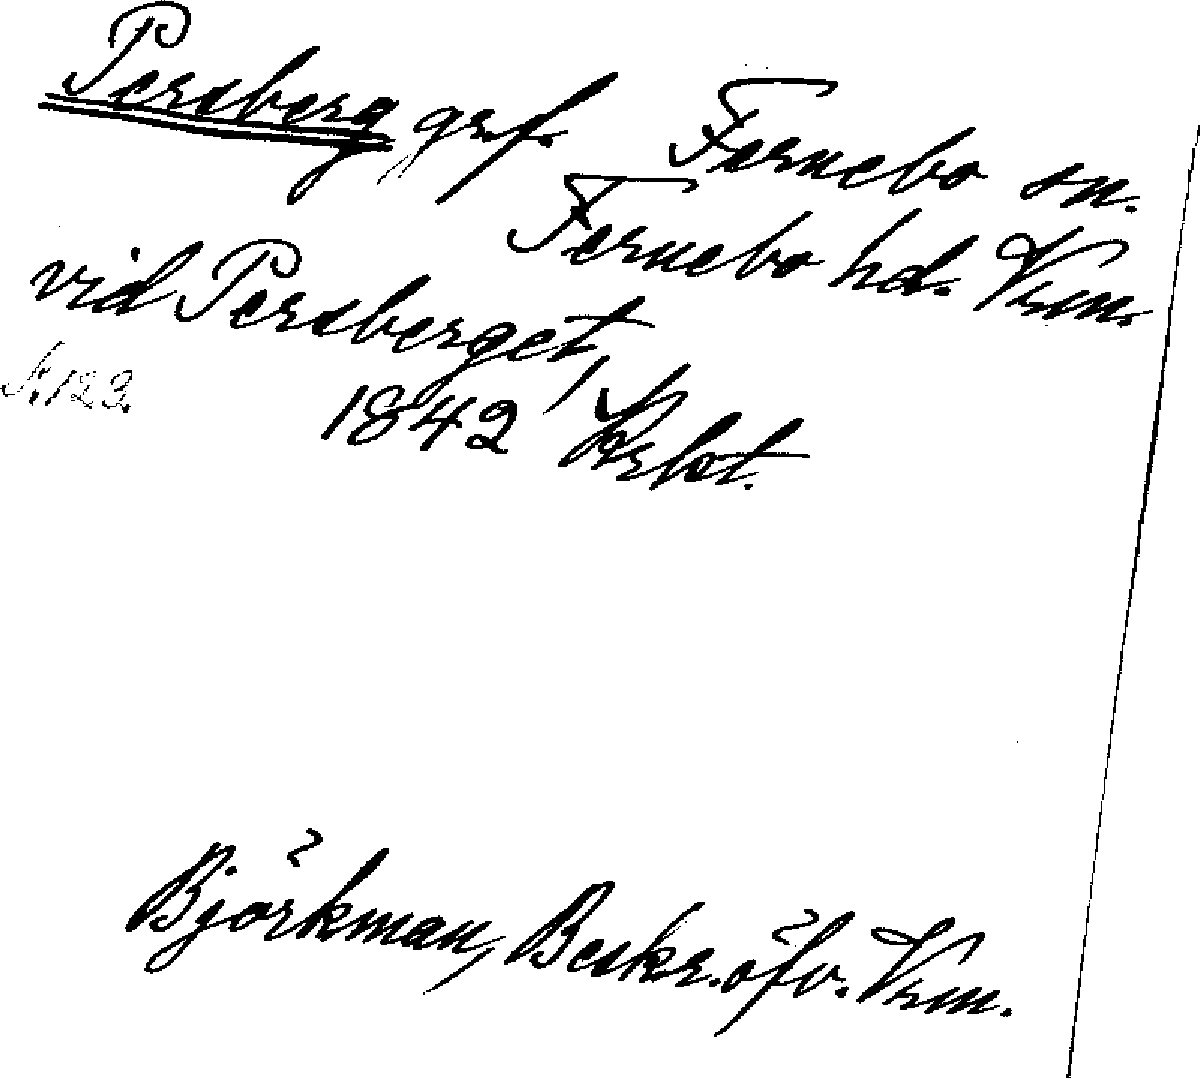 Persberg grf. Fernebo sn.
Fernebo hd. Vrm.
vid Persberget,
1842 Krlst.
s. 123.
Björkman, Beskr. öfv. Vrm.